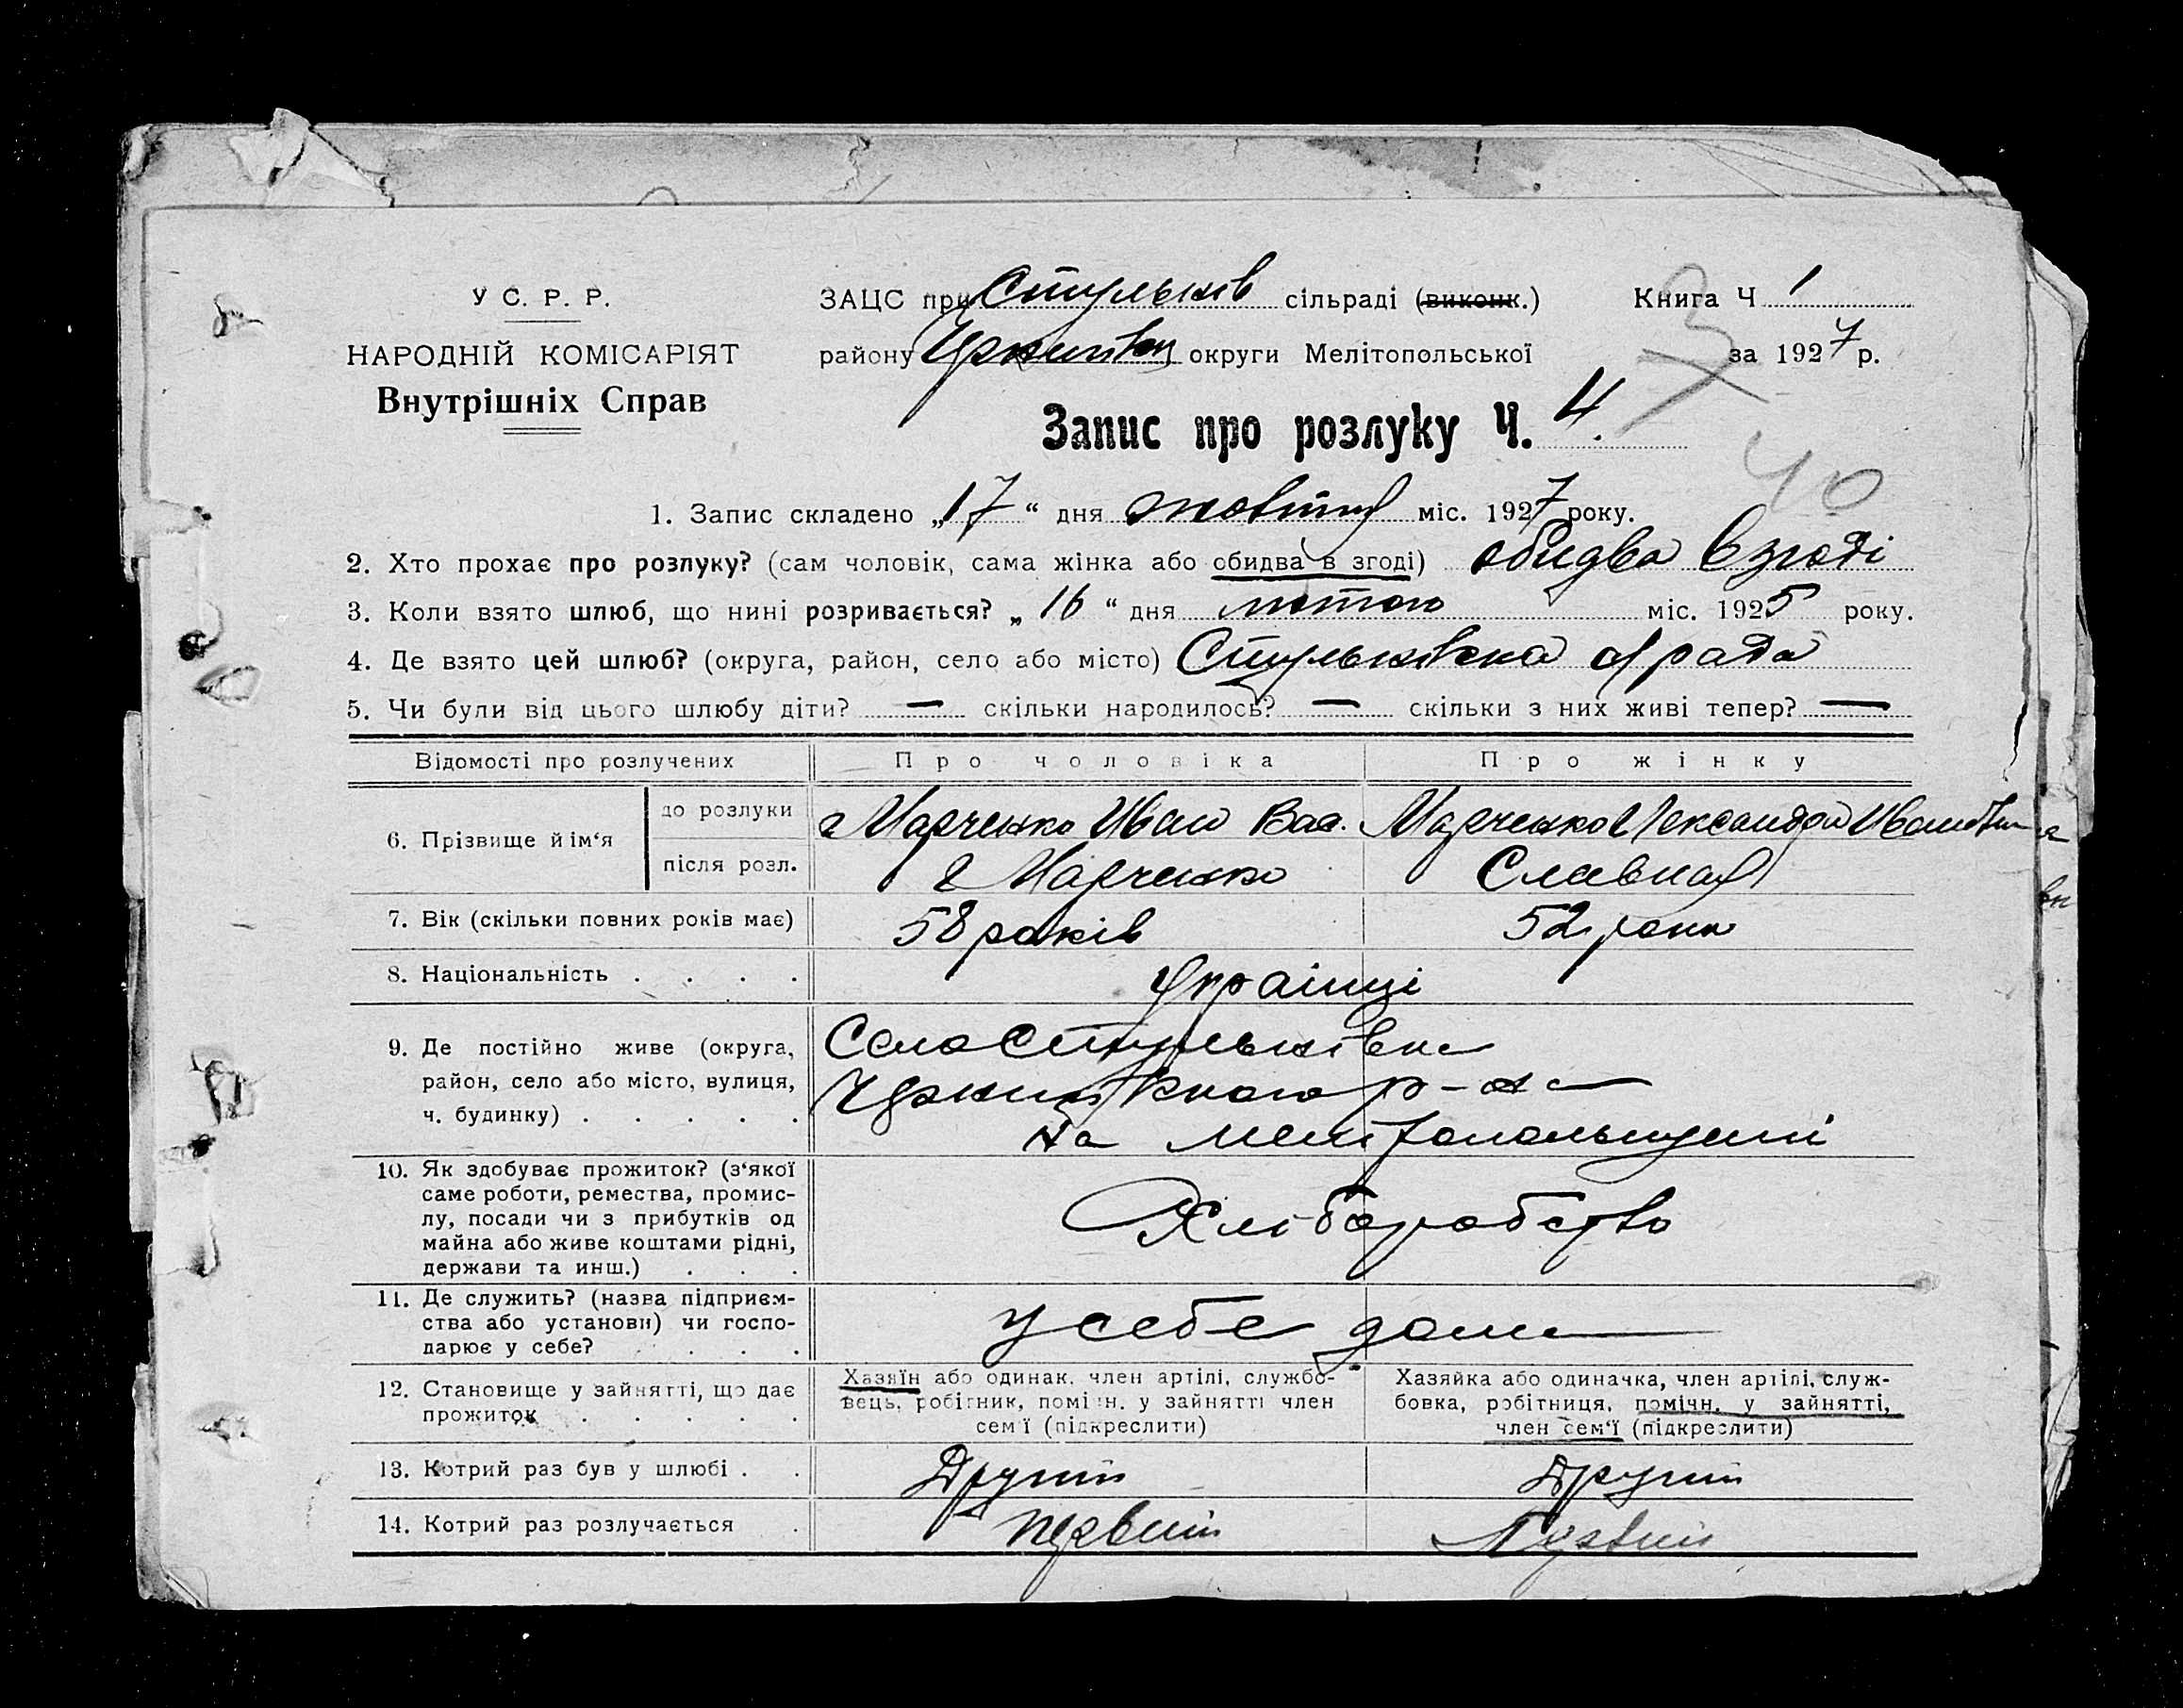 У С. Р. Р.
НАРОДНІЙ КОМІСАРІЯТ
Внутрішніх Справ
ЗАЦС при Стульнів сільраді (виконк.) Книга Ч 1
району округи Мелітопольської за 1927 р.
3
Запис про розлуку Ч. 4.
40
1. Запис складено „17“ дня жовтня міс. 1927 року.
2. Хто прохає про розлуку? (сам чоловік, сама жінка або обидва в згоді) обидва в згоді
3. Коли взято шлюб, що нині розривається? „16“ дня лютого міс. 1925 року.
4. Де взято цей шлюб? (округа, район, село або місто) Стульнівська с/рада
5. Чи були від цього шлюбу діти? — скільки народилось? — скільки з них живі тепер? —
Відомості про розлучених Про чоловіка Про жінку
6. Прізвище й ім‘я до розлуки Марченко Иван Вас. Марченко Александра Ивановна
після розл. Марченко Славная
7. Вік (скільки повних років має) 58 років 52 роки
8. Національність . . . . Українці
9. Де постійно живе (округа, район, село або місто, вулиця, ч. будинку) . . . . . Село Стульнівка
р-на
на Мелітопольщині
10. Як здобуває прожиток? (з‘якої саме роботи, ремества, промислу, посади чи з прибутків од майна або живе коштами рідні, держави та инш.) . . . Хліборобство
11. Де служить? (назва підприємства або установи) чи господарює у себе? . . . . у себе дома
12. Становище у зайнятті, що дає прожиток . . . . . Хазяїн або одинак, член артілі, службовець, робітник, помічн. у зайнятті член сем‘ї (підкреслити) Хазяйка або одиначка, член артілі, службовка, робітниця, помічн. у зайнятті, член сем‘ї (підкреслити)
13. Котрий раз був у шлюбі . . Другий Другий
14. Котрий раз розлучається . Первий Первий